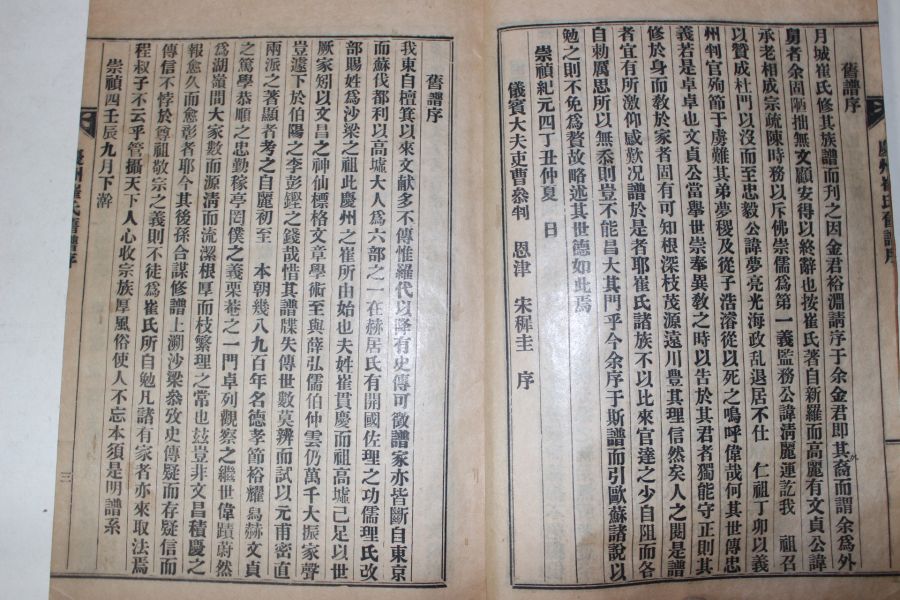 舊譜序
月城崔氏修其族譜而刋之因金君裕淵請序于余金君即其裔外而謂余爲外
舅者余固陋拙無文顧安得以終辭也按崔氏著自新羅而高麗有文貞公諱
承老相成宗疏陳時務以斥佛崇儒爲第一義監務公諱淸麗運訖我　祖召
以贊成杜門以沒而至忠毅公諱夢亮光海政乱退居不仕　仁祖丁卯以義
州判官殉節于虜難其弟夢稷及從子浩溶從以死之嗚呼偉哉何其世傳忠
義若是卓卓也文貞公當擧世崇奉異敎之時以告於其君者獨能守正則其
修於身而敎於家者固有可知根深枝茂源遠川豊其理信然矣人之閱是譜
者宜有所激仰感歎况譜於是者耶崔氏諸族不以比來官達之少自阻而各
自勅厲思所以無忝則豈不能昌大其門乎今余序于斯譜而引歐蘇諸說以
勉之則不免爲贅故略述其世德如此焉
崇禎紀元四丁丑仲夏　日
儀賓大夫吏曹叅判　恩津　宋穉圭　序
舊譜序
我東自檀箕以來文献多不傳惟羅代以降有史傳可徵譜家亦皆斷自東京
而蘇伐都利以高墟大人爲六部之一在赫居氏有開國佐理之功儒理氏改
部賜姓爲沙梁之祖此慶州之崔所由始也夫姓崔貫慶而祖高墟已足以世
厥家矧以文昌之神仙標格文章學術至與薛弘儒伯仲雲仍萬千大振家聲
豈遽下於伯陽之李彭鏗之錢哉惜其譜牒失傳世數莫辨而試以元甫密直
兩派之著顯者考之自麗初至　本朝幾八九百年名德孝節裕耀舃赫文貞
之篤學恭順之忠勤稼亭罔僕之義栗菴之一門卓列觀察之繼世偉蹟蔚然
爲湖嶺間大家數而源淸而流潔根厚而枝繁理之常也玆豈非文昌積慶之
報愈久而愈彰者耶今其後孫合謀修譜上溯沙梁叅攷史傳疑而存疑信而
傳信不悖於尊祖敬宗之義則不徒爲崔氏所自勉凡諸有家者亦來取法焉
程叔子不云乎管攝天下人心收宗族厚風俗使人不忘本須是明譜系
崇禎四壬辰九月下澣
慶州崔氏舊譜序
三